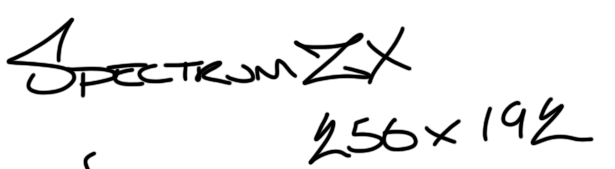 SPECTRUM ZX
256 x 192